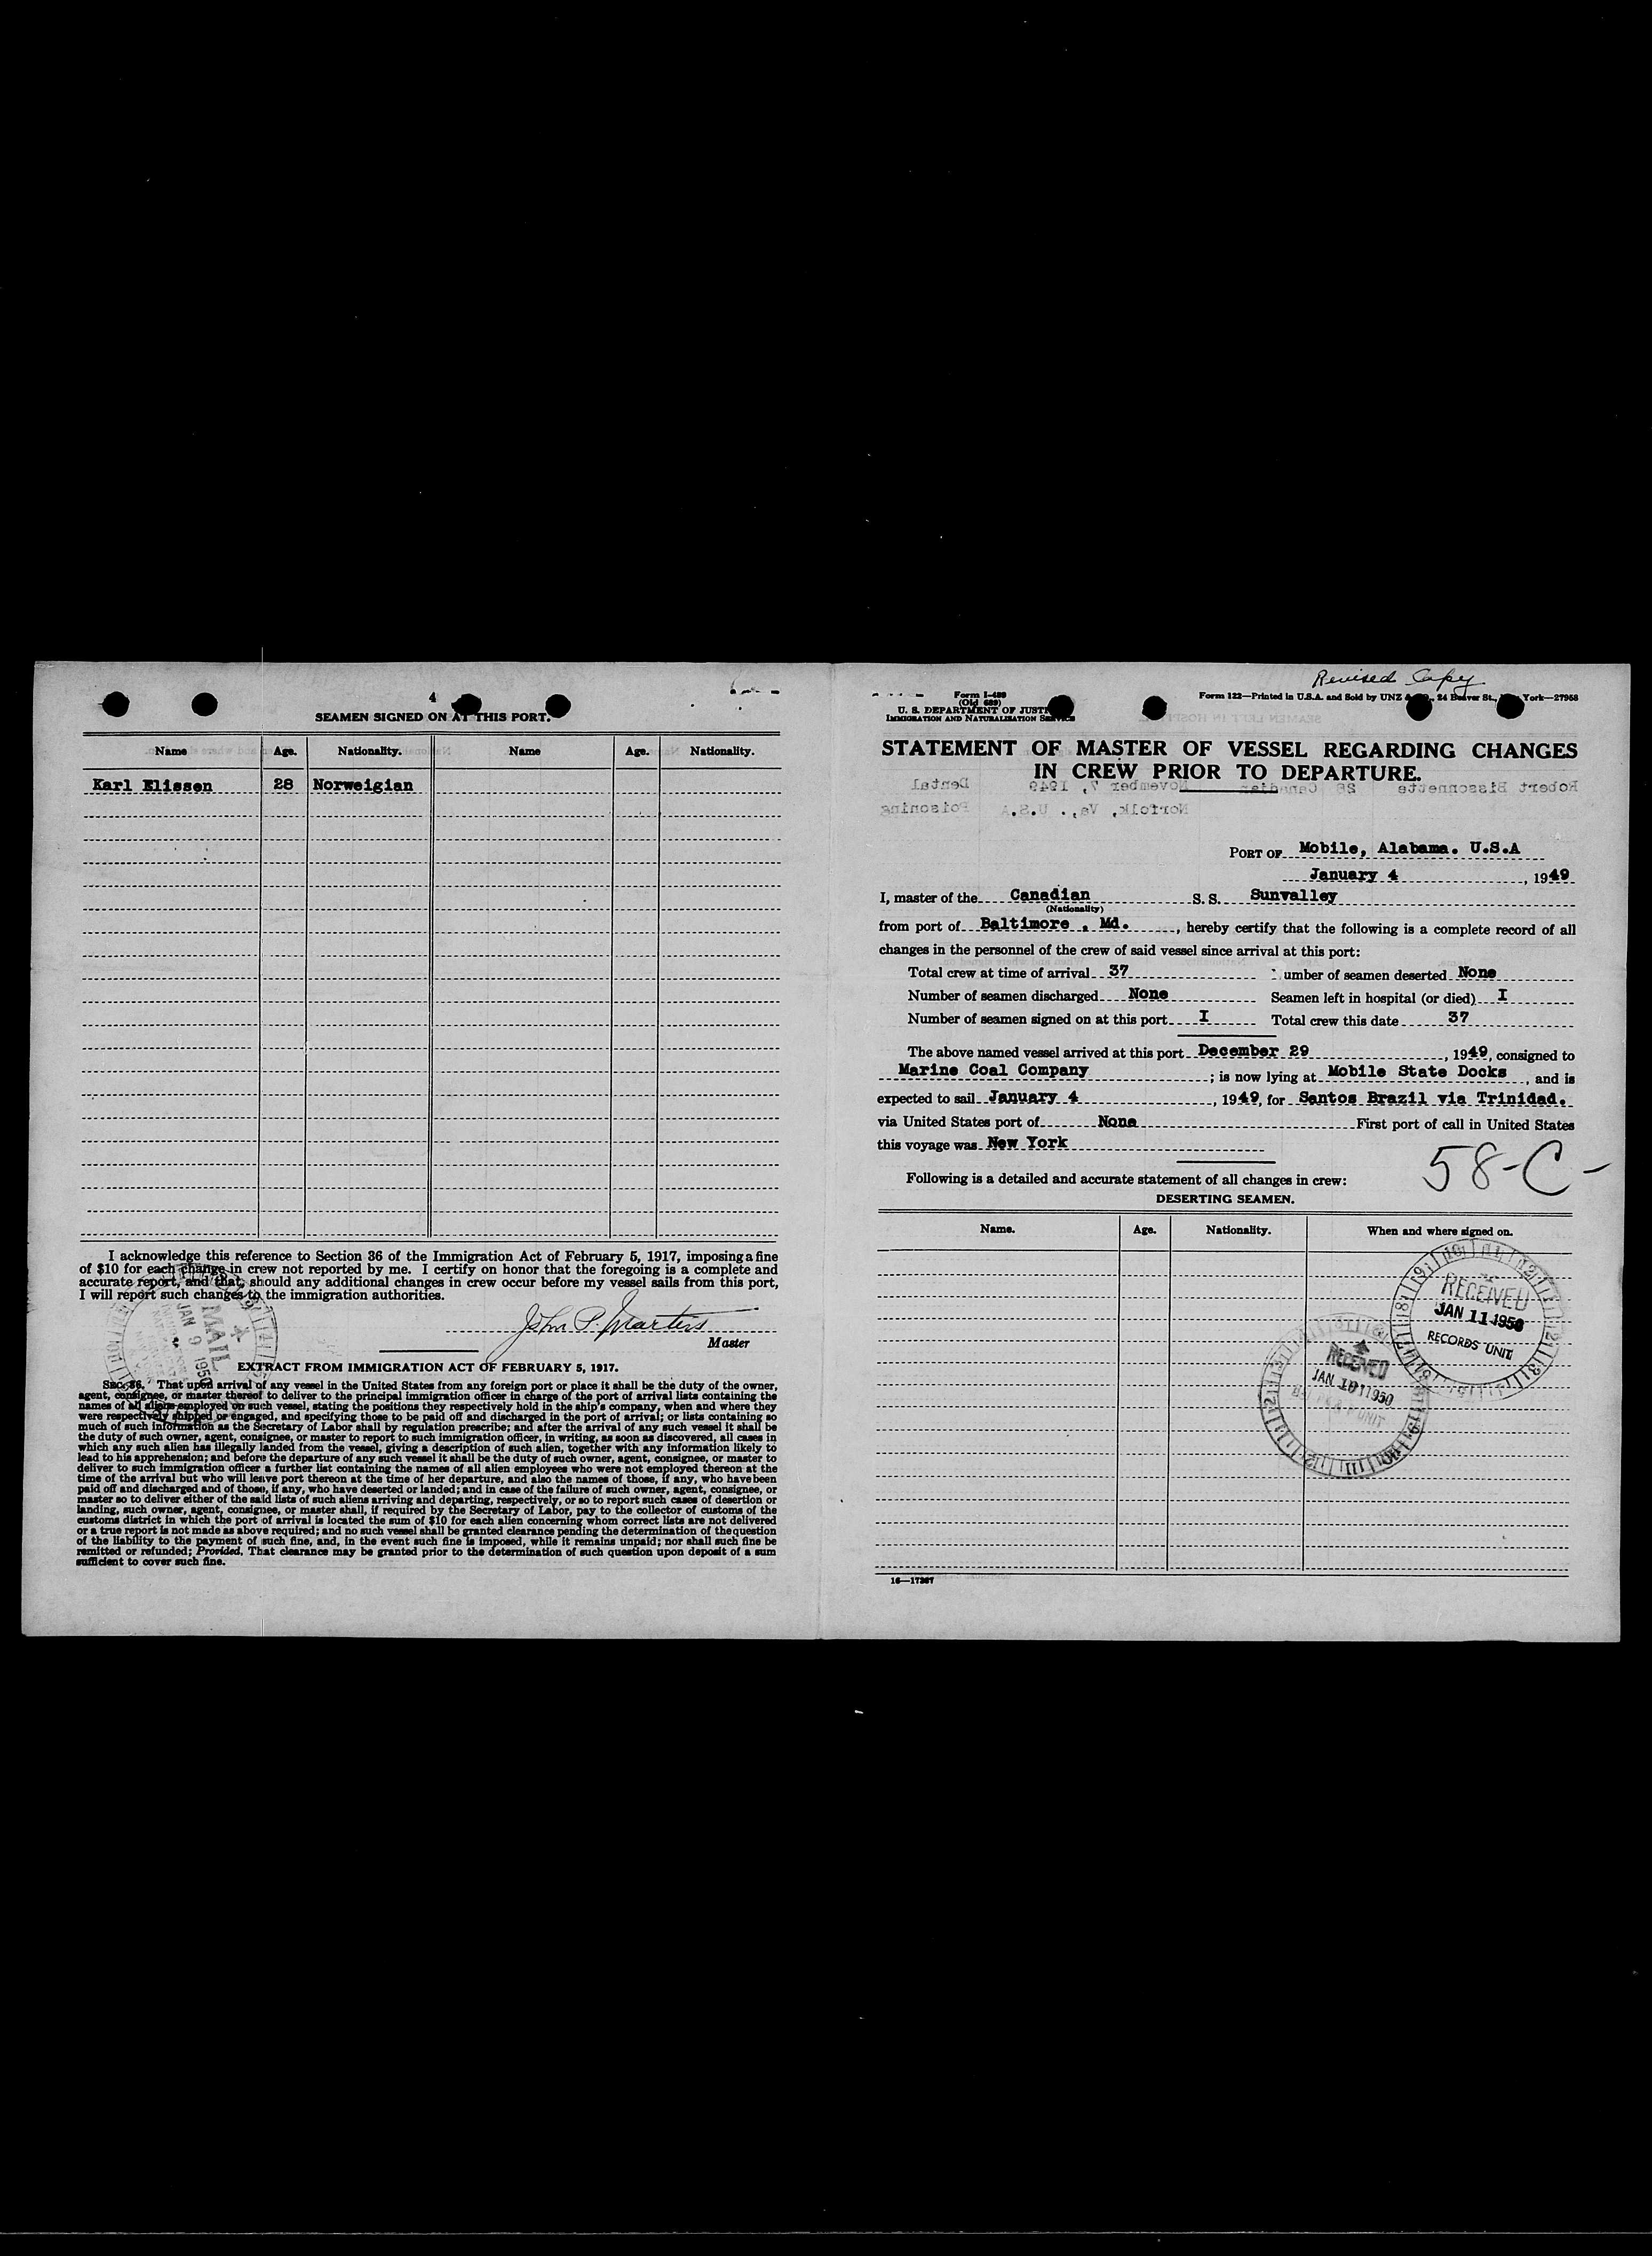 4
SEAMEN SIGNED ON AT THIS PORT.
Name Age. Nationality. Name Age. Nationality.
Karl Elissen 28 Norweigian
I acknowledge this reference to Section 36 of the Immigration Act of February 5, 1917, imposing a fine
of $10 for each change in crew not reported by me. I certify on honor that the foregoing is a complete and
accurate report, and that, should any additional changes in crew occur before my vessel sails from this port,
I will report such changes to the immigration authorities.
John P. Martens
Master
MAIL
JAN 9 1950
EXTRACT FROM IMMIGRATION ACT OF FEBRUARY 5, 1917.
SEC. 36. That upon arrival of any vessel in the United States from any foreign port or place it shall be the duty of the owner,
agent, consignee, or master thereof to deliver to the principal immigration officer in charge of the port of arrival lists containing the
names of all aliens employed on such vessel, stating the positions they respectively hold in the ship's company, when and where they
were respectively shipped or engaged, and specifying those to be paid off and discharged in the port of arrival; or lists containing so
much of such information as the Secretary of Labor shall by regulation prescribe; and after the arrival of any such vessel it shall be
the duty of such owner, agent, consignee, or master to report to such immigration officer, in writing, as soon as discovered, all cases in
which any such alien has illegally landed from the vessel, giving a description of such alien, together with any information likely to
lead to his apprehension; and before the departure of any such vessel it shall be the duty of such owner, agent, consignee, or master to
deliver to such immigration officer a further list containing the names of all alien employees who were not employed thereon at the
time of the arrival but who will leave port thereon at the time of her departure, and also the names of those, if any, who have been
paid off and discharged and of those, if any, who have deserted or landed; and in case of the failure of such owner, agent, consignee, or
master so to deliver either of the said lists of such aliens arriving and departing, respectively, or so to report such cases of desertion or
landing, such owner, agent, consignee, or master shall, if required by the Secretary of Labor, pay to the collector of customs of the
customs district in which the port of arrival is located the sum of $10 for each alien concerning whom correct lists are not delivered
or a true report is not made as above required; and no such vessel shall be granted clearance pending the determination of the question
of the liability to the payment of such fine, and, in the event such fine is imposed, while it remains unpaid; nor shall such fine be
remitted or refunded; Provided, That clearance may be granted prior to the determination of such question upon deposit of a sum
sufficient to cover such fine.
Revised Copy
Form I-489
(Old 689)
U. S. DEPARTMENT OF JUSTICE
IMMIGRATION AND NATURALIZATION SERVICE
Form 122—Printed in U.S.A. and Sold by UNZ & CO., 24 Beaver St., New York—27958
STATEMENT OF MASTER OF VESSEL REGARDING CHANGES
IN CREW PRIOR TO DEPARTURE.
Robert Bissonnette 28 Canadian November 7, 1949 Dental
Norfolk, Va., U.S.A Poisoning
PORT OF Mobile, Alabama. U.S.A
January 4, 1949
I, master of the Canadian S. S. Sunvalley
(Nationality)
from port of Baltimore , Md. , hereby certify that the following is a complete record of all
changes in the personnel of the crew of said vessel since arrival at this port:
Total crew at time of arrival 37 umber of seamen deserted None
Number of seamen discharged None Seamen left in hospital (or died) I
Number of seamen signed on at this port I Total crew this date 37
The above named vessel arrived at this port December 29, 1949, consigned to
Marine Coal Company ; is now lying at Mobile State Docks, and is
expected to sail January 4, 1949, for Santos Brazil via Trinidad.
via United States port of None First port of call in United States
this voyage was New York
58-C-
Following is a detailed and accurate statement of all changes in crew:
DESERTING SEAMEN.
Name. Age. Nationality. When and where signed on.
RECEIVED
JAN 11 1950
RECORDS UNIT
RECEIVED
JAN 10 1950
UNIT
16—17267